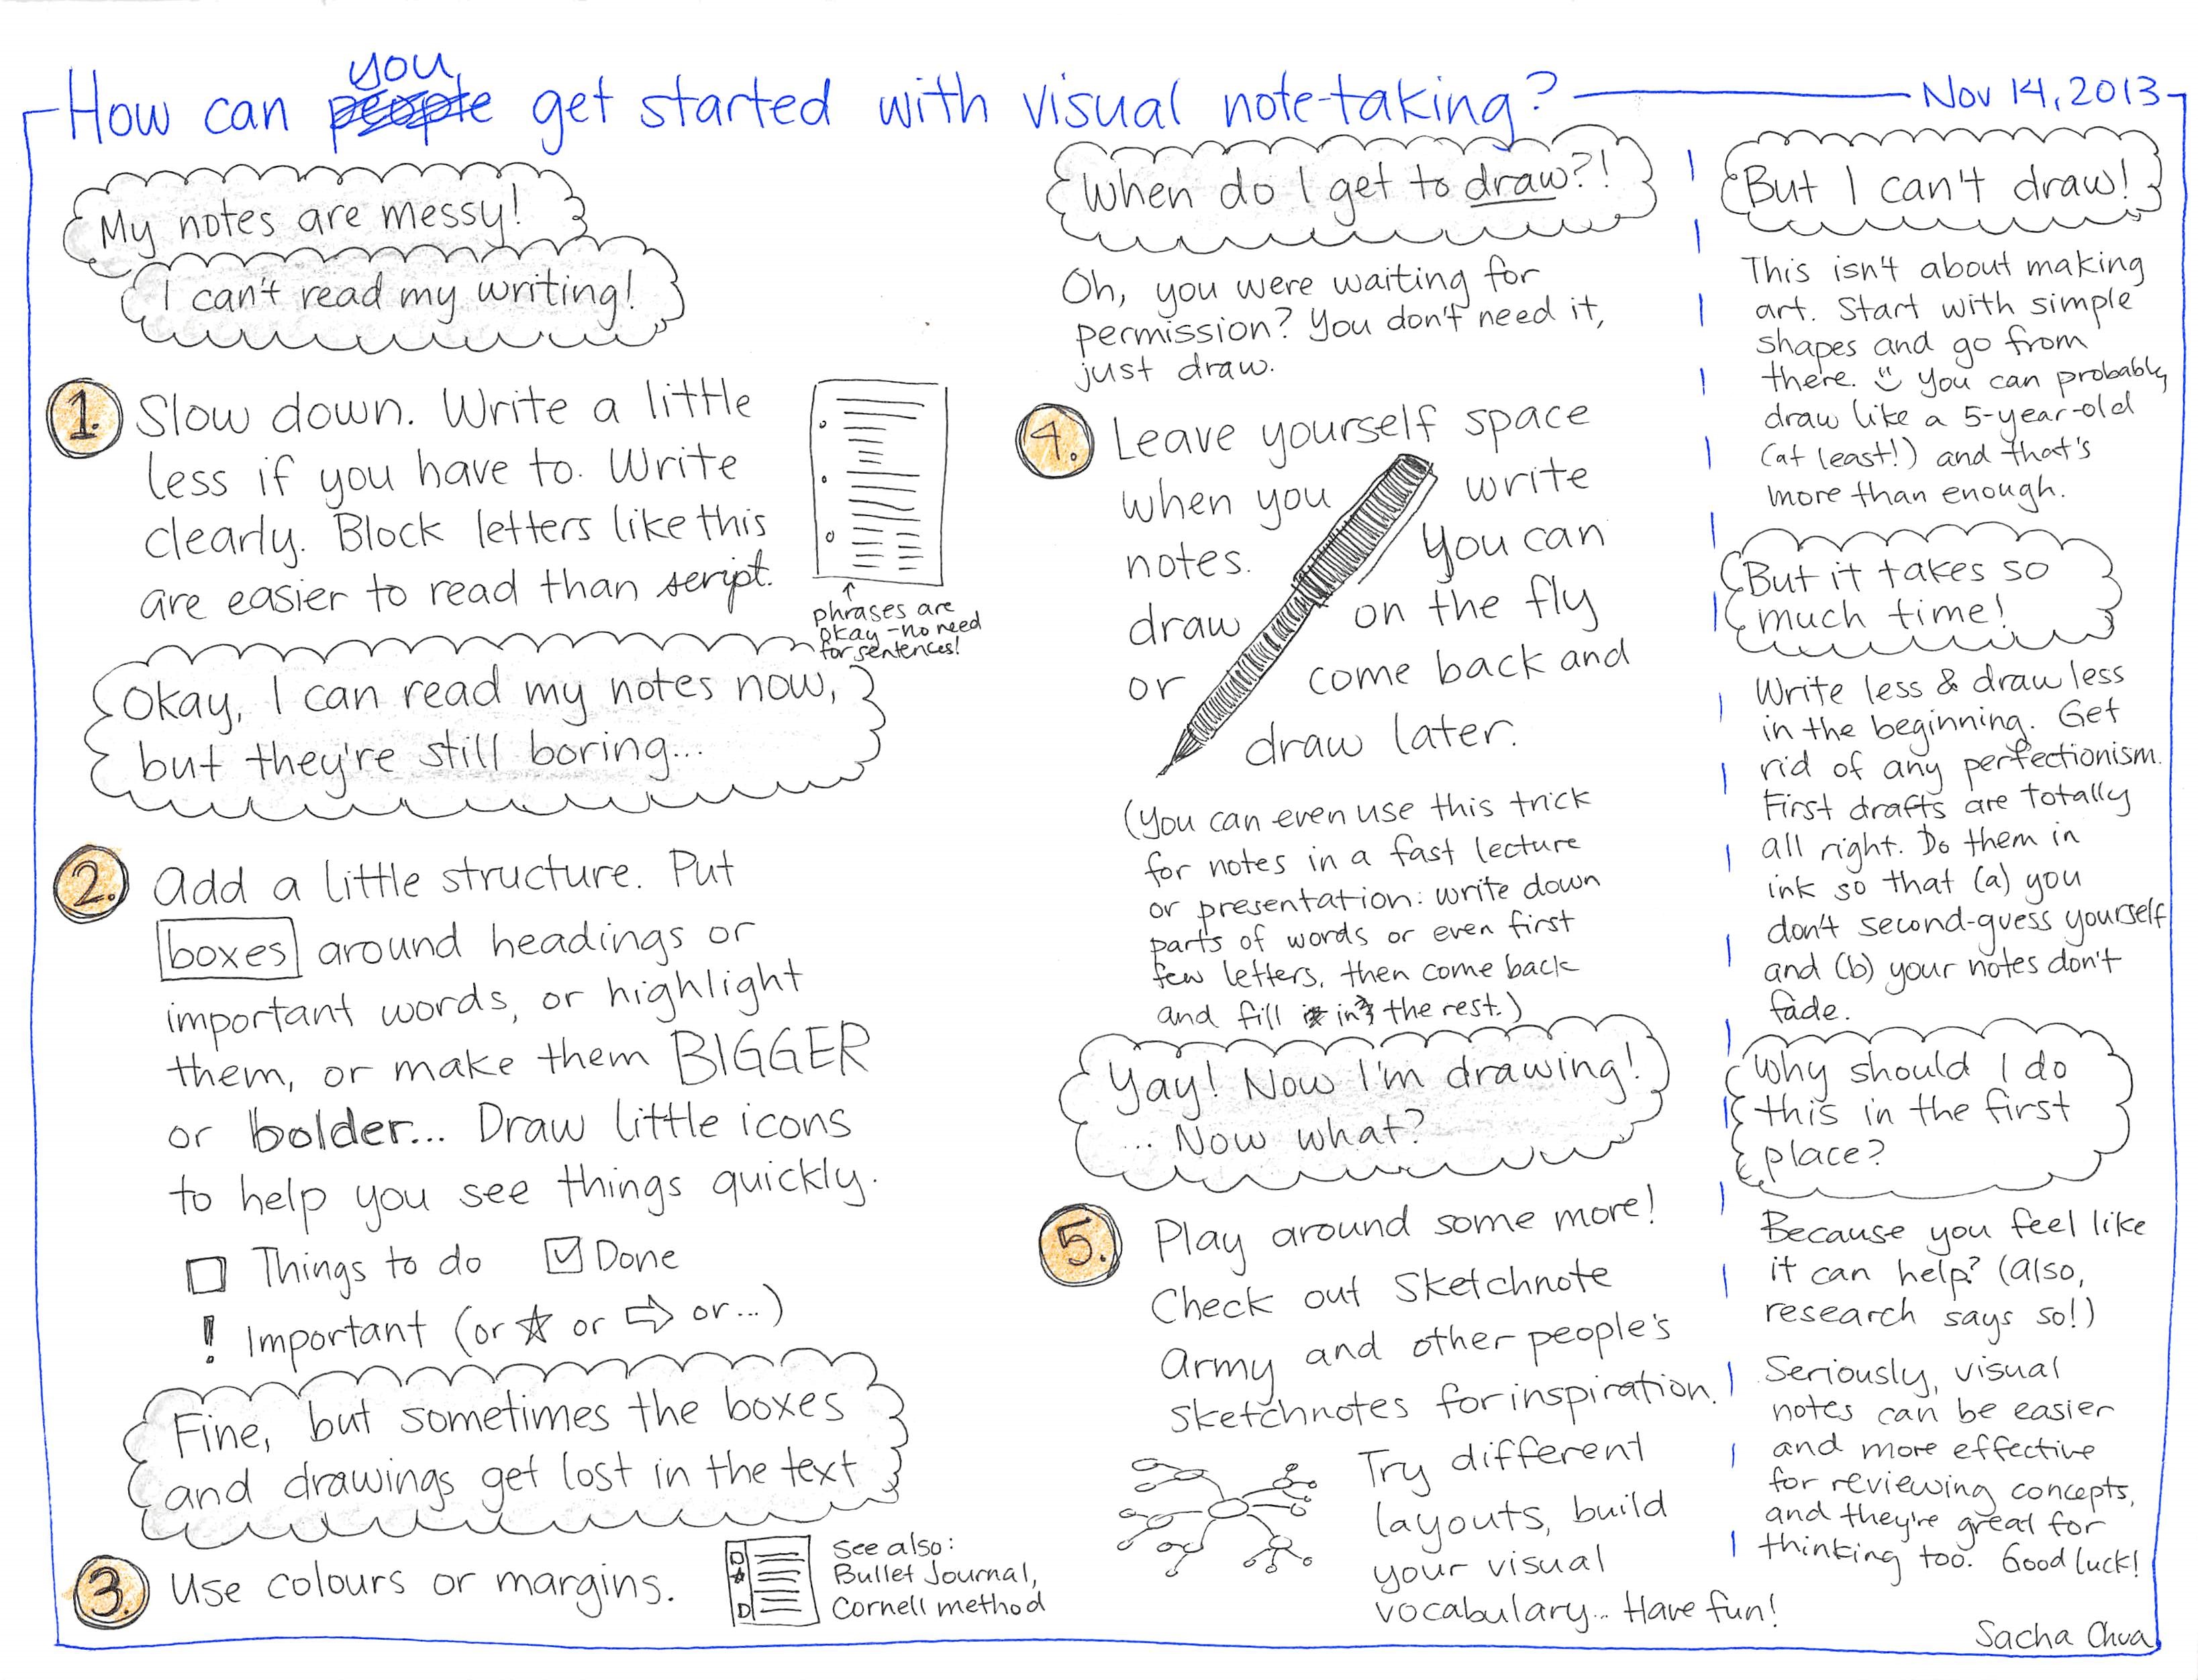 How can you get started with visual note-taking? Nov 14, 2013
My notes are messy!
I can't read my writing!
1. Slow down. Write a little
less if you have to. Write
clearly. Block letters like this
are easier to read than script.
phrases are
okay - no need
for sentences!
Okay, I can read my notes now,
but they're still boring...
2. Add a little structure. Put
boxes around headings or
important words, or highlight
them, or make them BIGGER
or bolder... Draw little icons
to help you see things quickly.
Things to do Done
! Important (or ☆ or ⇨ or...)
Fine, but sometimes the boxes
and drawings get lost in the text
3. Use colours or margins.
D
See also:
Bullet Journal,
Cornell method
When do I get to draw?!
Oh, you were waiting for
permission? You don't need it,
just draw.
4. Leave yourself space
when you write
notes. You can
draw on the fly
or come back and
draw later.
(You can even use this trick
for notes in a fast lecture
or presentation: write down
parts of words or even first
few letters, then come back
and fill in the rest.)
Yay! Now I'm drawing!
... Now what?
5. Play around some more!
Check out Sketchnote
Army and other people's
sketchnotes for inspiration.
Try different
layouts, build
your visual
vocabulary... Have fun!
But I can't draw!
This isn't about making
art. Start with simple
shapes and go from
there. You can probably
draw like a 5-year-old
(at least!) and that's
more than enough.
But it takes so
much time!
Write less & draw less
in the beginning. Get
rid of any perfectionism.
First drafts are totally
all right. Do them in
ink so that (a) you
don't second-guess yourself
and (b) your notes don't
fade.
Why should I do
this in the first
place?
Because you feel like
it can help? (Also,
research says so!)
Seriously, visual
notes can be easier
and more effective
for reviewing concepts,
and they're great for
thinking too. Good luck!
Sacha Chua